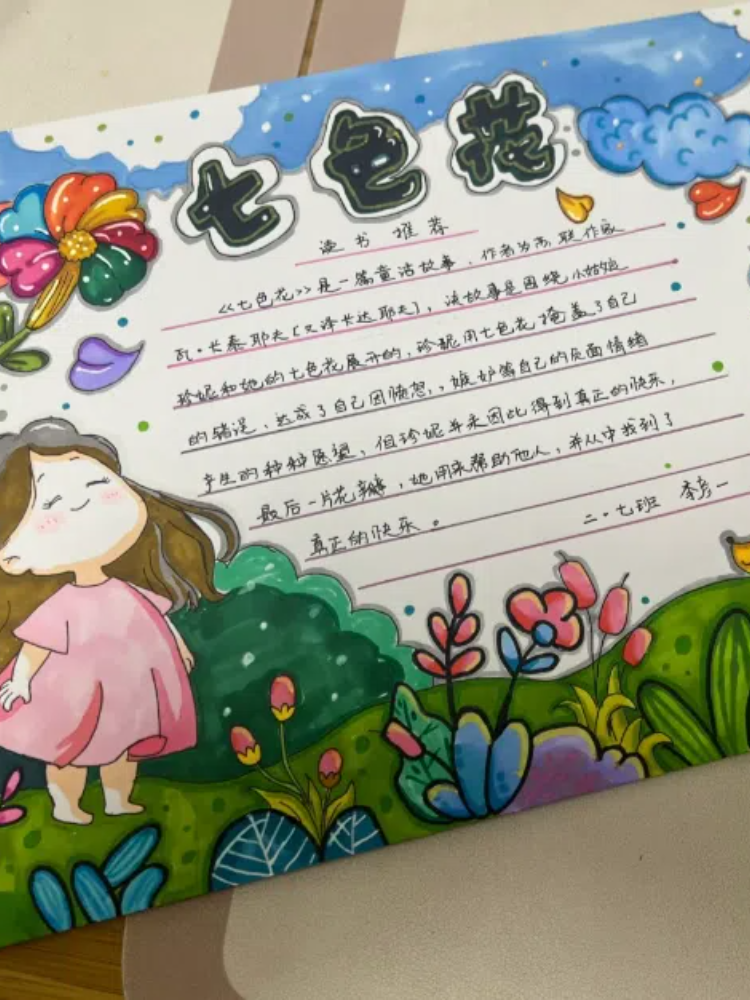 七色花
读书推荐
《七色花》是一篇童话故事，作者为苏联作家
瓦·卡泰耶夫[又译卡达耶夫]，该故事是围绕小姑娘
珍妮和她的七色花展开的，珍妮用七色花掩盖了自己
的错误，达成了自己因愤怒，，嫉妒等自己的负面情绪
产生的种种愿望，但珍妮并未因此得到真正的快乐，
最后一片花瓣，她用来帮助他人，并从中找到了
真正的快乐。
二·七班 李彦一